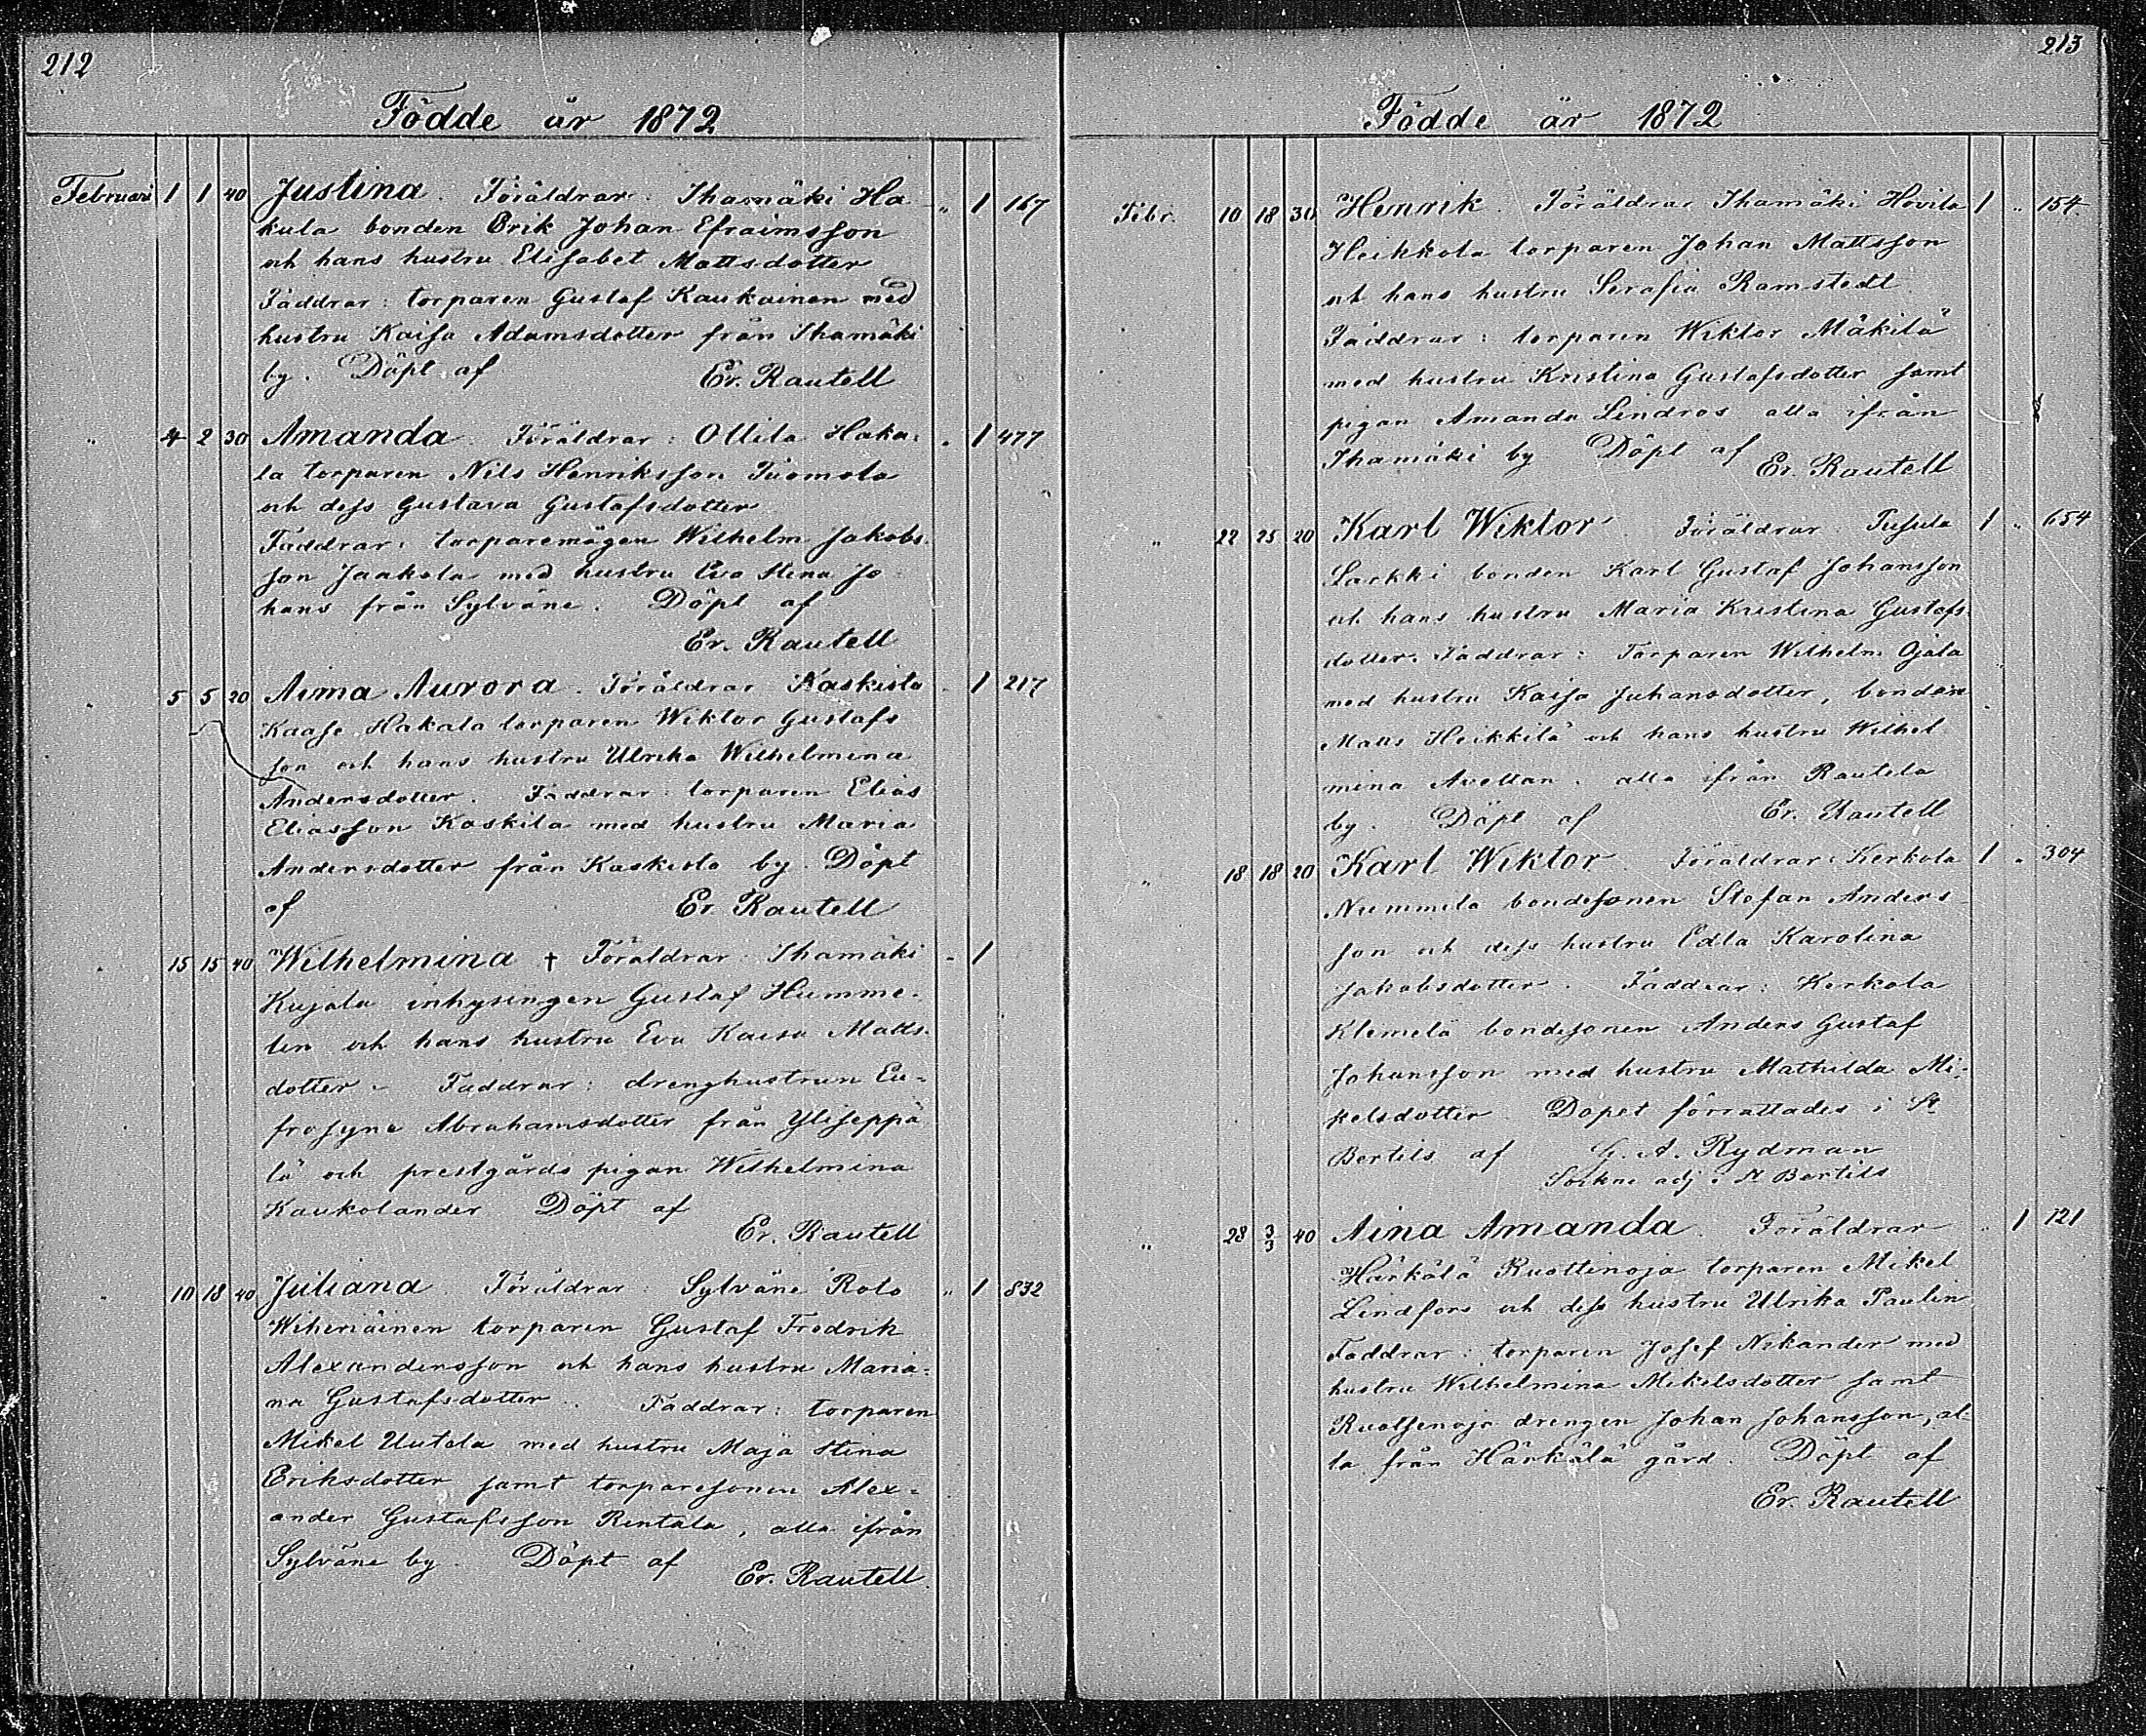 212
Födde år 1872
Februari 1 1 40 Justina. Föräldrar: Ihamäki Ha- " 1 167
kula bonden Erik Johan Efraimsson
och hans hustru Elisabet Mattsdotter
Fäddrar: torparen Gustaf Kaukainen med
hustru Kaisa Adamsdotter från Ihamäki
by. Döpt af Er. Rautell
" 4 2 30 Amanda. Föräldrar: Ollila Haka- " 1 477
la torparen Nils Henriksson Tuomola
och dess Gustava Gustafsdotter
Fäddrar: torparemågen Wilhelm Jakobs-
son Jaakola med hustru Eva Stina Jo
hans från Sylväne. Döpt af
Er. Rautell
" 5 5 20 Aima Aurora. Föräldrar: Kaskisto " 1 217
Kaase Hakala torparen Wiktor Gustafs
son och hans hustru Ulrika Wilhelmina
Andersdotter. Fäddrar: torparen Elias
Eliasson Koskila med hustru Maria
Andersdotter från Kaskisto by. Döpt
af Er. Rautell
" 15 15 40 Wilhelmina † Föräldrar: Ihamäki " 1
Kujala inhysingen Gustaf Humme-
lin och hans hustru Eva Kaisa Matts-
dotter. Faddrar: drenghustrun Eu-
frosyne Abrahamsdotter från Yliseppä
lä och prestgårds pigan Wilhelmina
Kaukolander Döpt af
Er. Rautell
" 10 18 40 Juliana. Föräldrar: Sylväne Roto " 1 832
Wiheriäinen torparen Gustaf Fredrik
Alexandersson och hans hustru Maria-
na Gustafsdotter. Faddrar: torparen
Mikel Uutela med hustru Maja Stina
Eriksdotter samt torparesonen Alex-
ander Gustafsson Rentala, alla ifrån
Sylväne by. Döpt af Er. Rautell.
213
Födde år 1872
Febr. 10 18 30 Henrik. Föräldrar Ihamäki Hovila 1 " 154
Heikkola torparen Johan Mattsson
och hans hustru Serafia Ramstedt
Fäddrar: torparen Wiktor Mäkilä
med hustru Kristina Gustafsdotter samt
pigan Amanda Lindros alla ifrån
Ihamäki by Döpt af Er. Rautell
" 22 25 20 Karl Wiktor. Föräldrar: 1 " 654
Laekki bonden Karl Gustaf Johansson
och hans hustru Maria Kristina Gustafs
dotter. Fäddrar: Torparen Wilhelm Ojala
med hustru Kaisa Juhansdotter, bonden
Matts Heikkilä och hans hustru Wilhel
mina Avellan. alla ifrån Rautela
by. Döpt af Er. Rautell
" 18 18 20 Karl Wiktor. Föräldrar: Kerkola 1 " 304
Nummela bondesonen Stefan Anders-
son och dess hustru Edla Karolina
Jakobsdotter. Fäddrar: Kerkola
Klemelä bondesonen Anders Gustaf
Johansson med hustru Mathilda Mi-
kelsdotter. Dopet förrättades i St
Bertils af G. A. Rydman
Sockne adj. i St Bertils
" 28 3/3 40 Aina Amanda. Föräldrar " 1 121
Härkälä Ruottinoja torparen Mikel
Lindfors och dess hustru Ulrika Paulin
Faddrar: torparen Josef Nikander med
hustru Wilhelmina Mikelsdotter samt
drengen Johan Johansson, al-
la från Härkälä gård. Döpt af
Er. Rautell